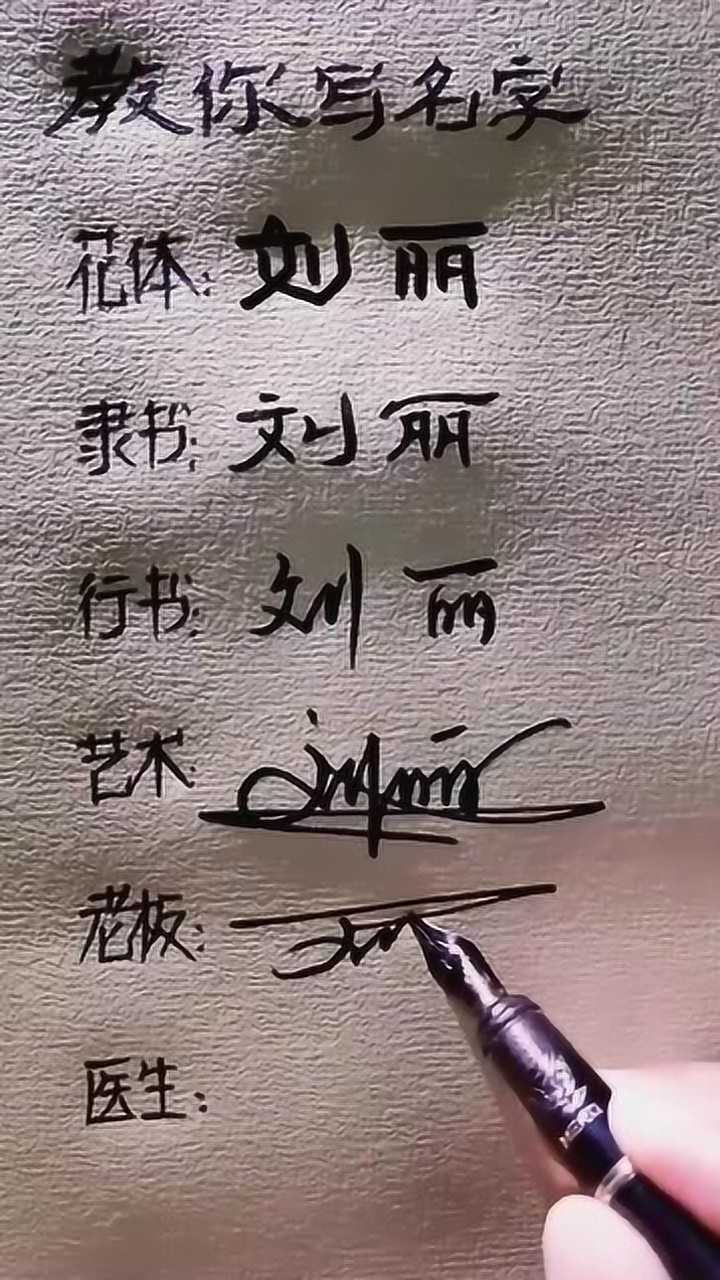 教你写名字
花体：刘丽
隶书：刘丽
行书：刘丽
艺术：刘丽
老板：
医生：
HERO